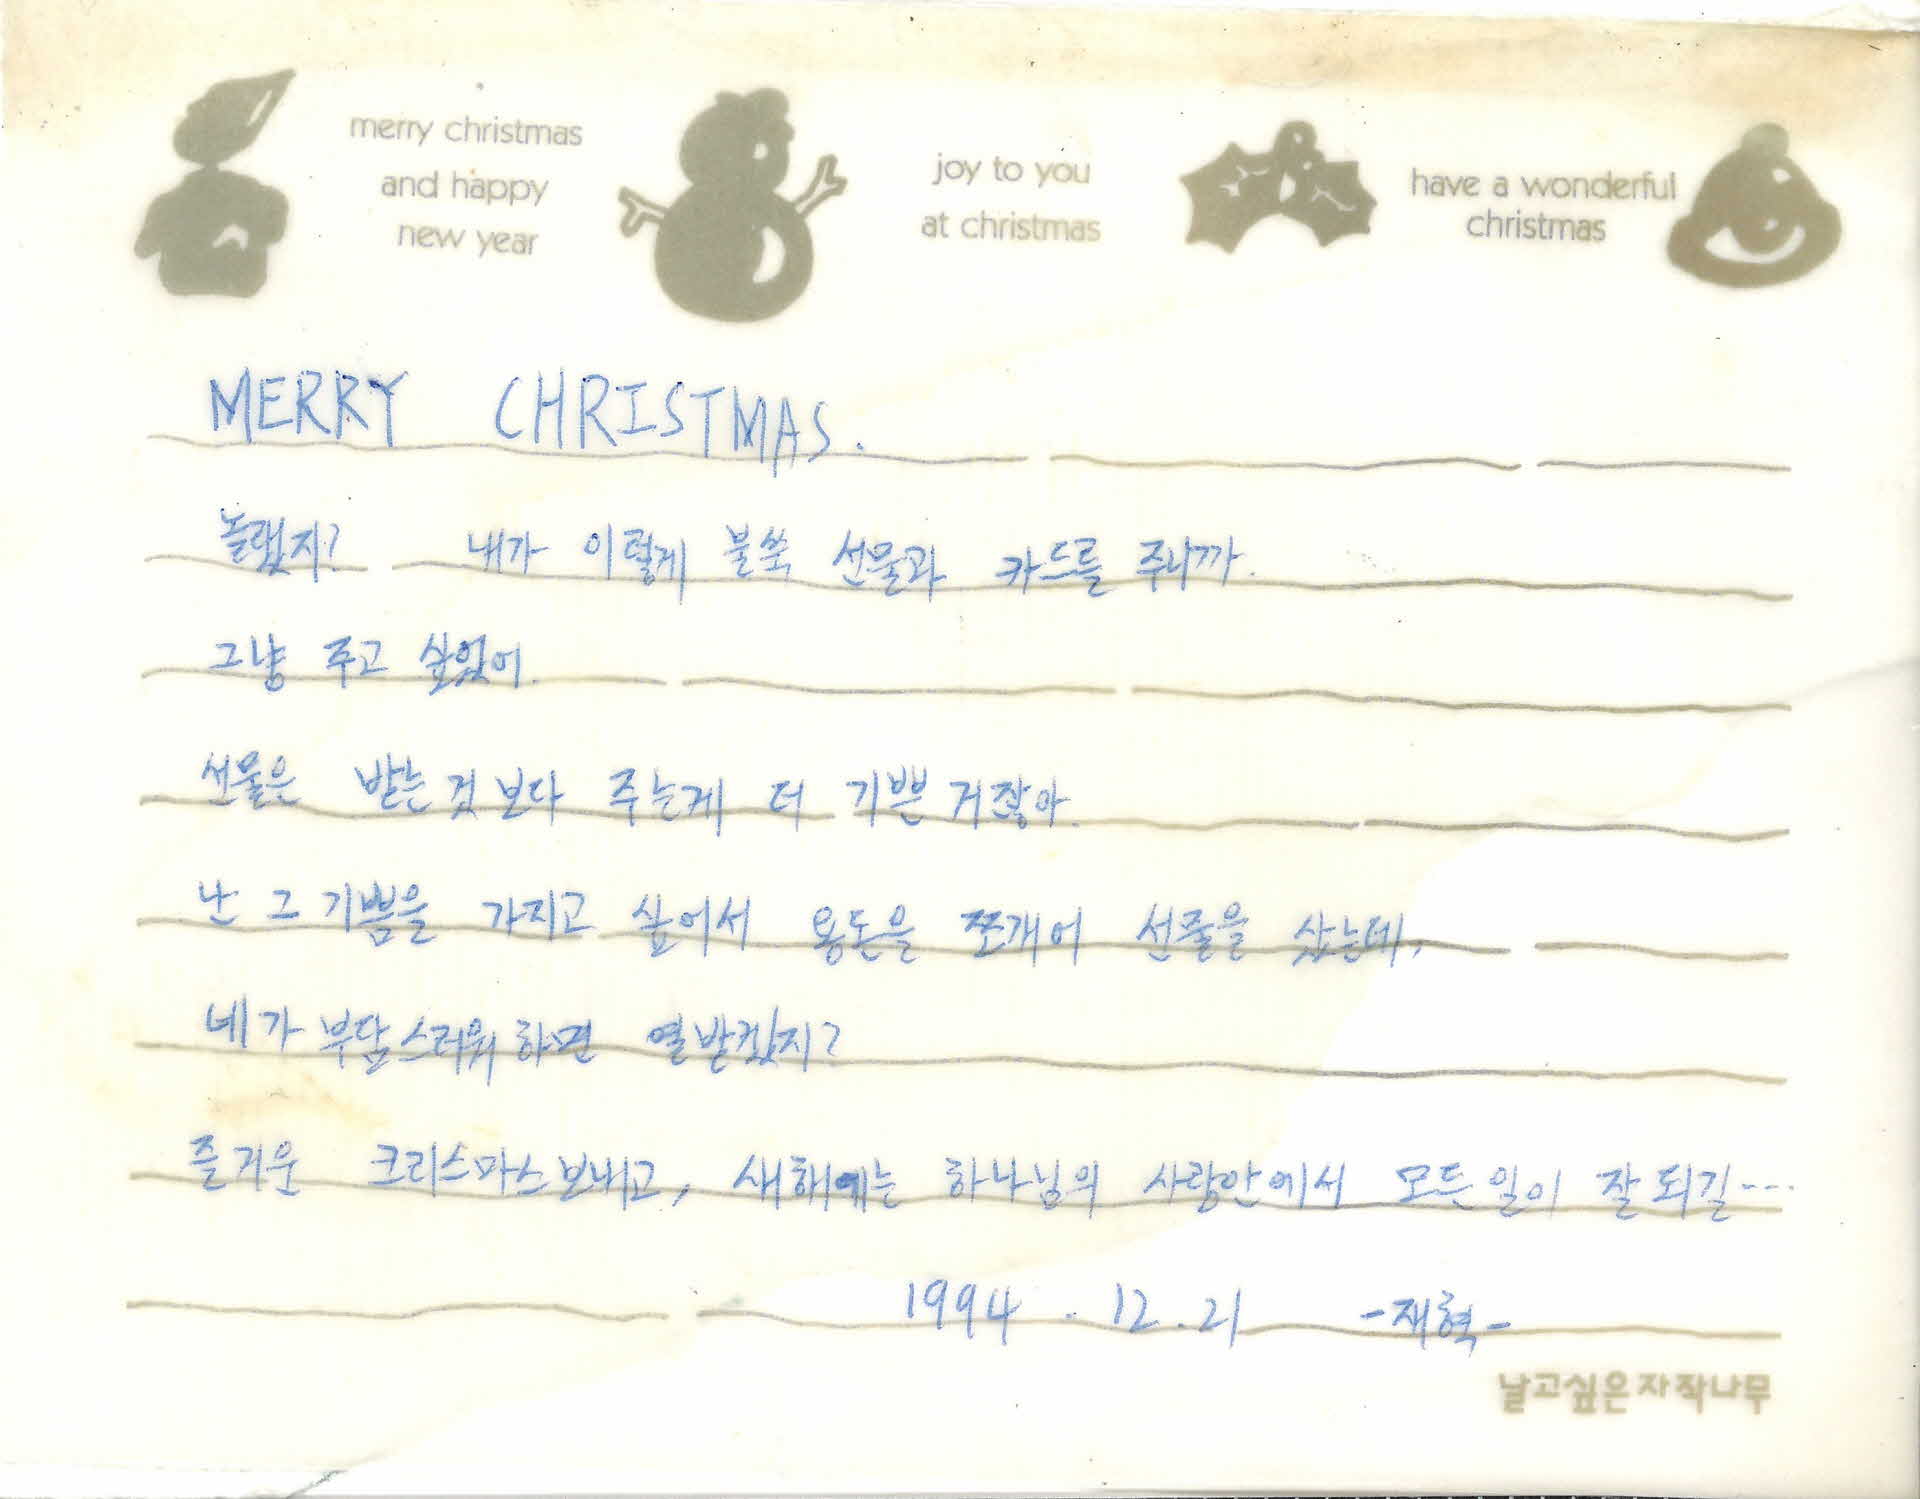 merry christmas
and happy
new year
joy to you
at christmas
have a wonderful
christmas
MERRY CHRISTMAS.
놀랬지? 내가 이렇게 불쑥 선물과 카드를 주니까.
그냥 주고 싶었어.
선물은 받는것 보다 주는게 더 기쁜 거잖아.
난 그 기쁨을 가지고 싶어서 용돈을 쪼개어 선물을 샀는데,
네가 부담스러워 하면 열받겠지?
즐거운 크리스마스 보내고, 새해에는 하나님의 사랑안에서 모든일이 잘 되길...
1994 . 12 . 21 -재혁-
날고싶은자작나무